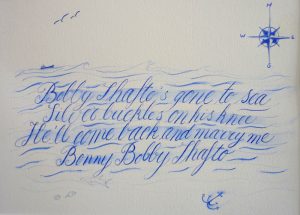 Bobby Shafto's gone to sea
Silver buckles on his knee
He'll come back and marry me
Bonny Bobby Shafto